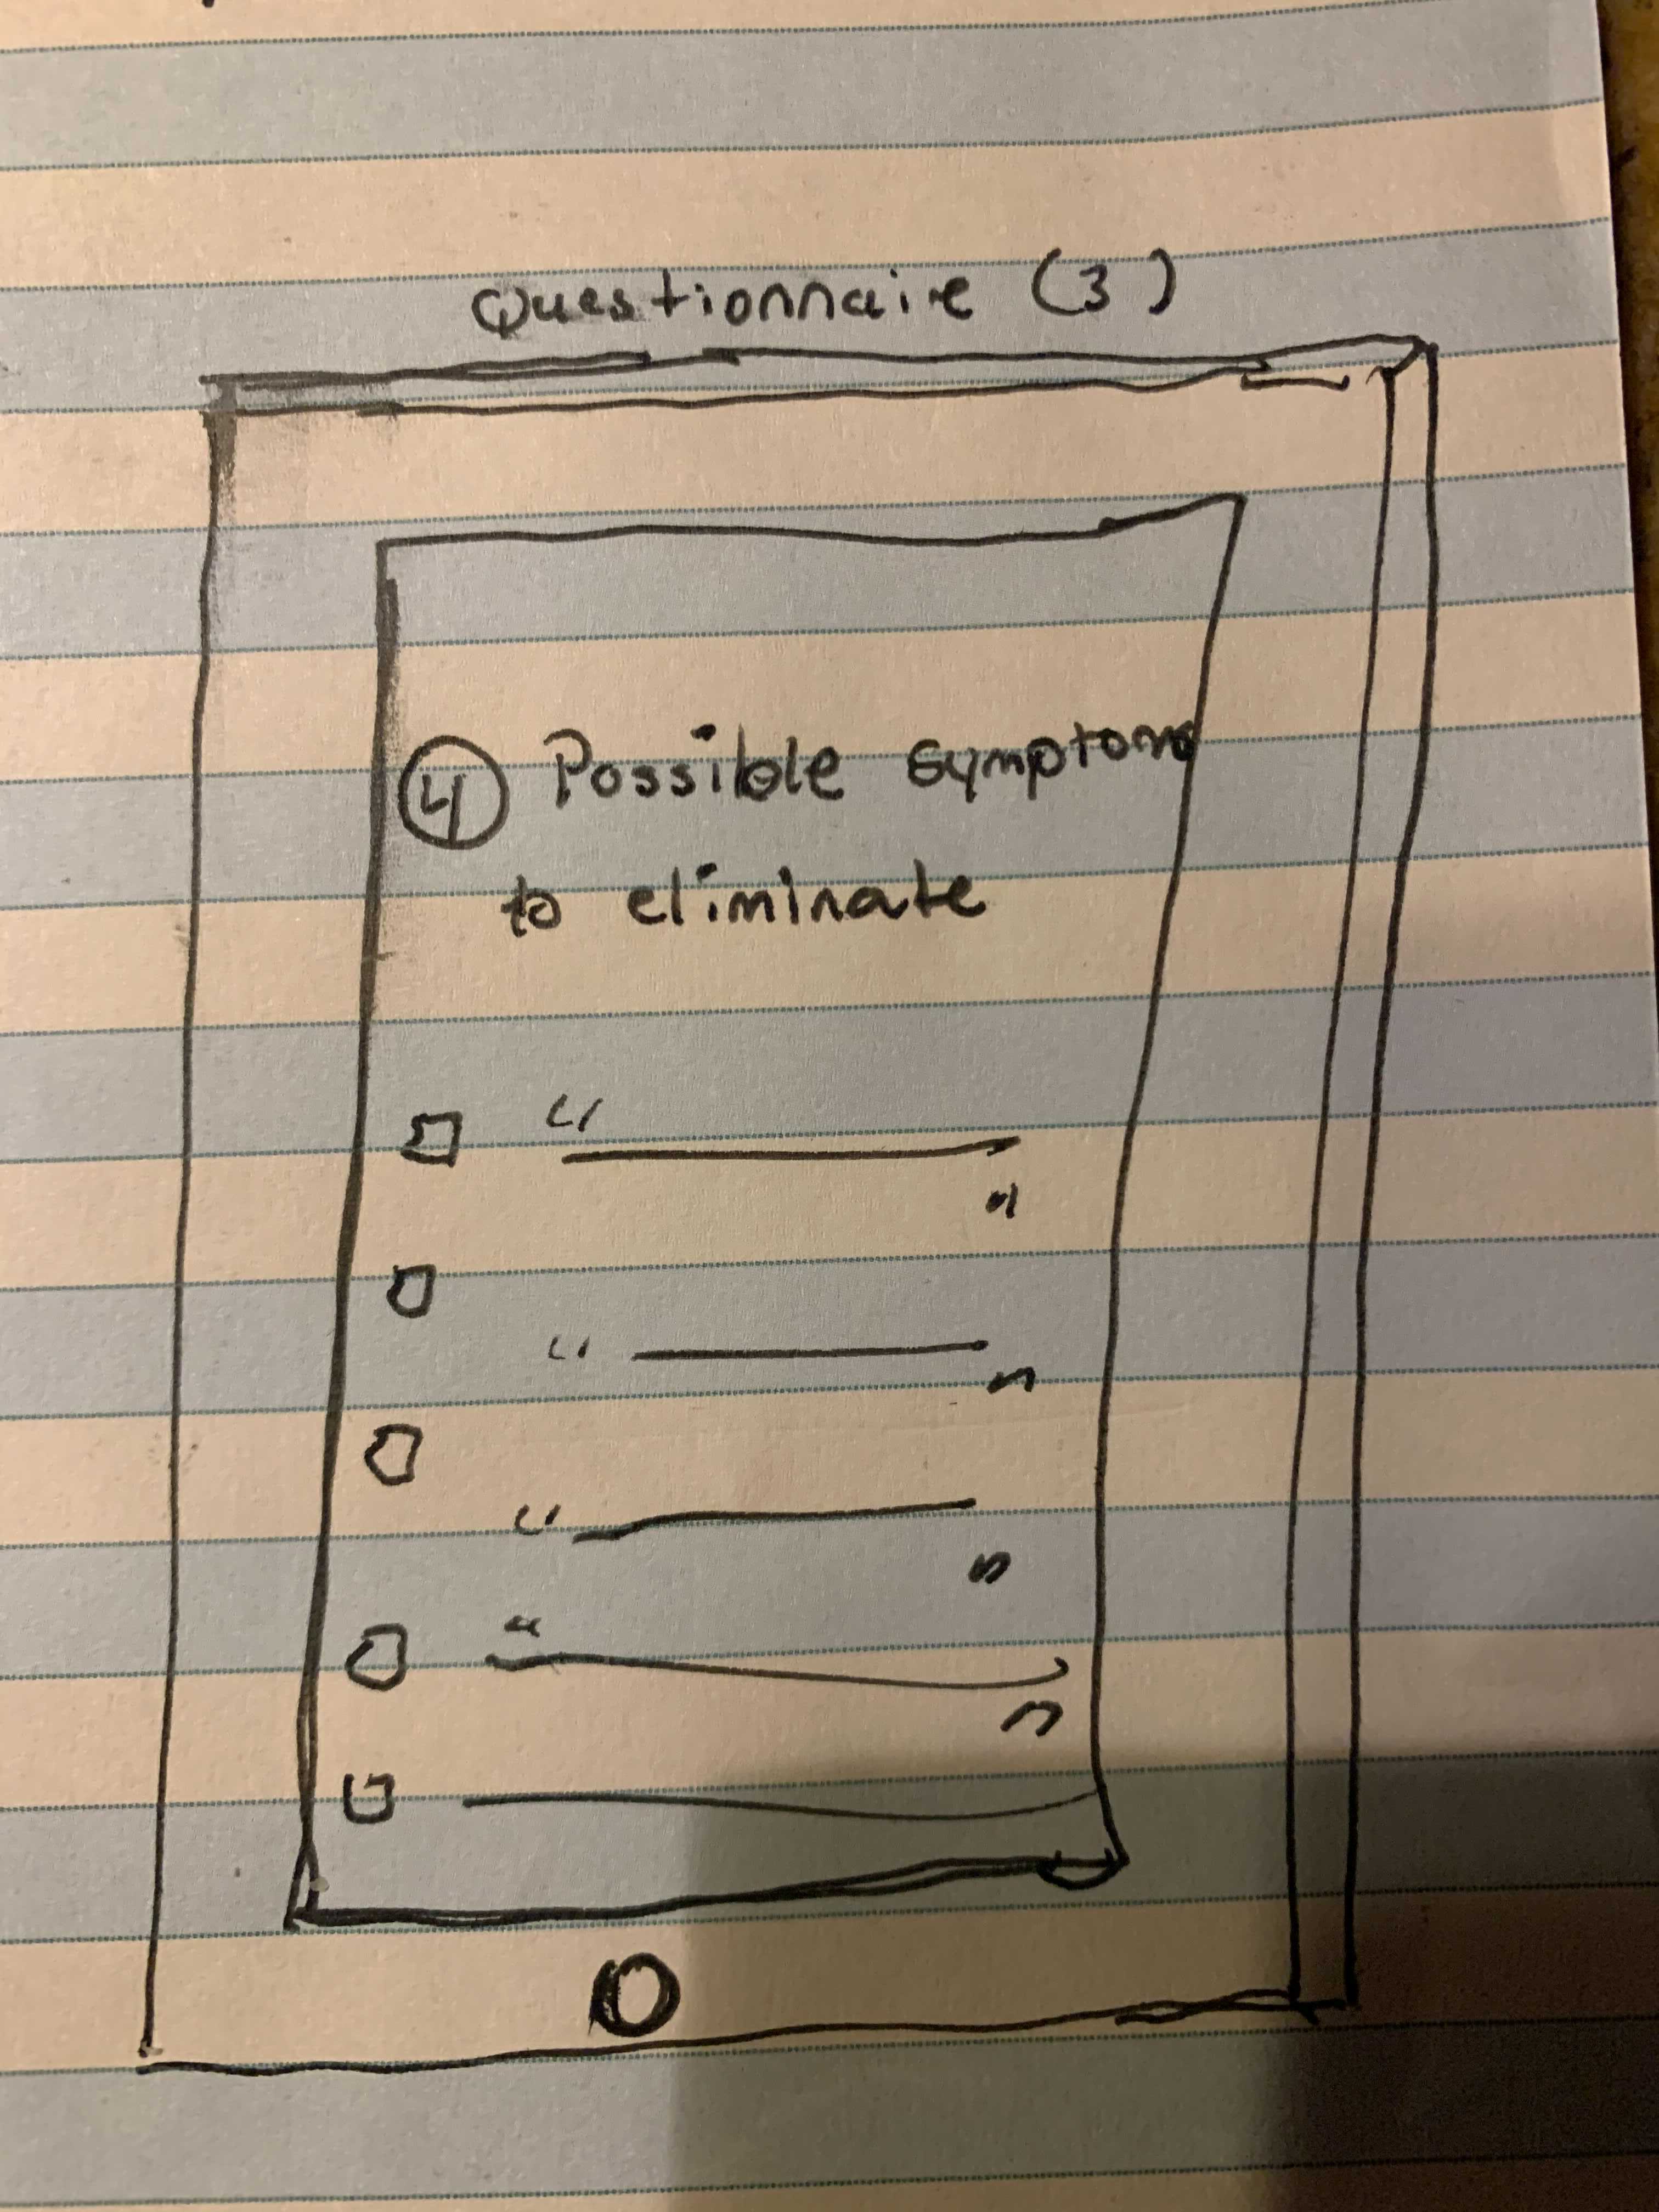 Questionnaire (3)
4 Possible symptoms
to eliminate
" "
" "
" "
" "